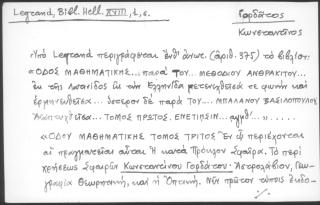 Legrand, Bibl. Hell. XVIII, t, 6.
Γορδάτος
Κωνσταντῖνος
Ὑπὸ Legrand περιγράφεται ἐνθ' ἀνωτ. (ἀριθ. 375) τὸ βιβλίον:
«ΟΔΟΣ ΜΑΘΗΜΑΤΙΚΗΣ... παρὰ ΤΟΥ... ΜΕΘΟΔΙΟΥ ΑΝΘΡΑΚΙΤΟΥ...
ἐκ τῆς Λατινίδος εἰς τὴν Ἑλληνίδα μετενεχθεῖσά τε φωνὴν καὶ
ἑρμηνευθεῖσα... ὕστερον δὲ παρὰ ΤΟΥ... ΜΠΑΛΑΝΟΥ ΒΑΣΙΛΟΠΟΥΛΟΥ
ΤΟΜΟΣ ΠΡΩΤΟΣ. ΕΝΕΤΙΗΣΙΝ... αψμθ'... »....
«ΟΔΟΥ ΜΑΘΗΜΑΤΙΚΗΣ ΤΟΜΟΣ ΤΡΙΤΟΣ Ἐν ᾧ περιέχονται
αἱ πραγματεῖαι αὗται Ἡ κατὰ Πρόκλον Σφαῖρα. Τὸ περὶ
χρήσεως Σφαιρῶν Κωνσταντίνου Γορδάτου. Ἀστρολάβιον, Γεω-
γραφία Θεωρητική, καὶ ἡ Ὀπτική. Νῦν πρῶτον τύποις ἐκδο-